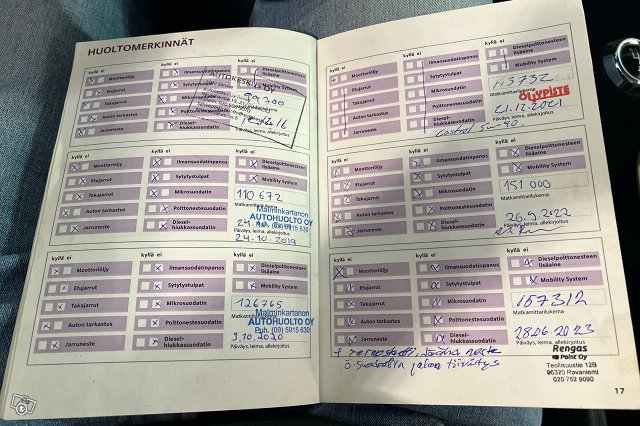 HUOLTOMERKINNÄT
kyllä ei
kyllä ei
kyllä ei
Moottoriöljy
Ilmansuodatinpanos
Dieselpolttonesteen lisäaine
Etujarrut
Sytytystulpat
Takajarrut
Mikrosuodatin
Auton tarkastus
Polttonestesuodatin
Jarruneste
Diesel-hiukkassuodatin
AUTOKESKUS OY
99300
kyllä ei
kyllä ei
kyllä ei
Moottoriöljy
Ilmansuodatinpanos
Dieselpolttonesteen lisäaine
Etujarrut
Sytytystulpat
Mobility System
Takajarrut
Mikrosuodatin
110 672
Matkamittarilukema
Auton tarkastus
Polttonestesuodatin
Malminkartanon
AUTOHUOLTO OY
Puh. (09) 5915 630
Jarruneste
Diesel-hiukkassuodatin
Päiväys, leima, allekirjoitus
24.10.2019
kyllä ei
kyllä ei
kyllä ei
Moottoriöljy
Ilmansuodatinpanos
Dieselpolttonesteen lisäaine
Etujarrut
Sytytystulpat
Mobility System
Takajarrut
Mikrosuodatin
126765
Auton tarkastus
Polttonestesuodatin
Malminkartanon
AUTOHUOLTO OY
Puh. (09) 5915 630
Jarruneste
Diesel-hiukkassuodatin
9.10.2020
Päiväys, leima, allekirjoitus
kyllä ei
kyllä ei
kyllä ei
Moottoriöljy
Ilmansuodatinpanos
Dieselpolttonesteen lisäaine
Etujarrut
Sytytystulpat
Mobility System
Takajarrut
Mikrosuodatin
Matkamittarilukema
ÖLJYPISTE
Auton tarkastus
Polttonestesuodatin
21.12.2021
Jarruneste
Diesel-hiukkassuodatin
Päiväys, leima, allekirjoitus
Castrol 5w-40
kyllä ei
kyllä ei
kyllä ei
Moottoriöljy
Ilmansuodatinpanos
Dieselpolttonesteen lisäaine
Etujarrut
Sytytystulpat
Mobility System
Takajarrut
Mikrosuodatin
151 000
Matkamittarilukema
Auton tarkastus
Polttonestesuodatin
26.9.2022
Jarruneste
Diesel-hiukkassuodatin
Päiväys, leima, allekirjoitus
kyllä ei
kyllä ei
kyllä ei
Moottoriöljy
Ilmansuodatinpanos
Dieselpolttonesteen lisäaine
Etujarrut
Sytytystulpat
Mobility System
Takajarrut
Mikrosuodatin
157312
Matkamittarilukema
Auton tarkastus
Polttonestesuodatin
28.06.2023
Jarruneste
Diesel-hiukkassuodatin
Päiväys, leima, allekirjoitus
Rengas
Point Oy
Teollisuustie 12B
96320 Rovaniemi
020 752 9090
17